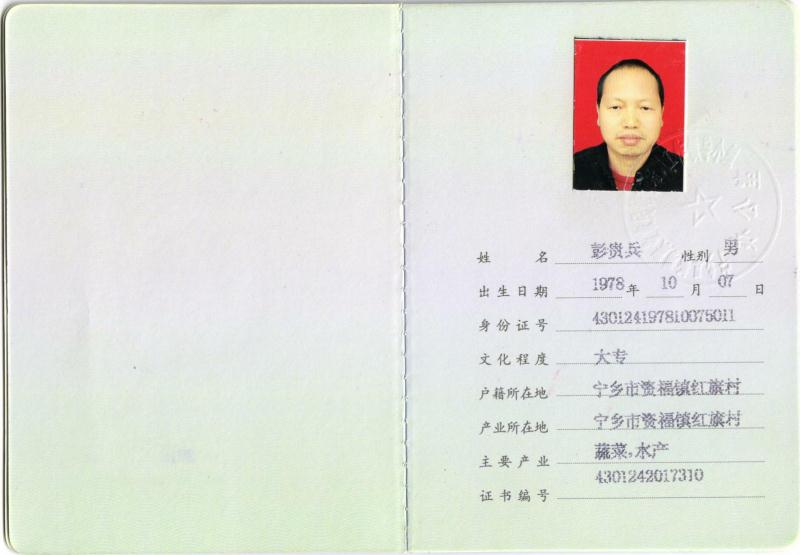 姓名 彭贵兵 性别 男
出生日期 1978 年 10 月 07 日
身份证号 430124197810075011
文化程度 大专
户籍所在地 宁乡市资福镇红旗村
产业所在地 宁乡市资福镇红旗村
主要产业 蔬菜,水产
证书编号 4301242017310